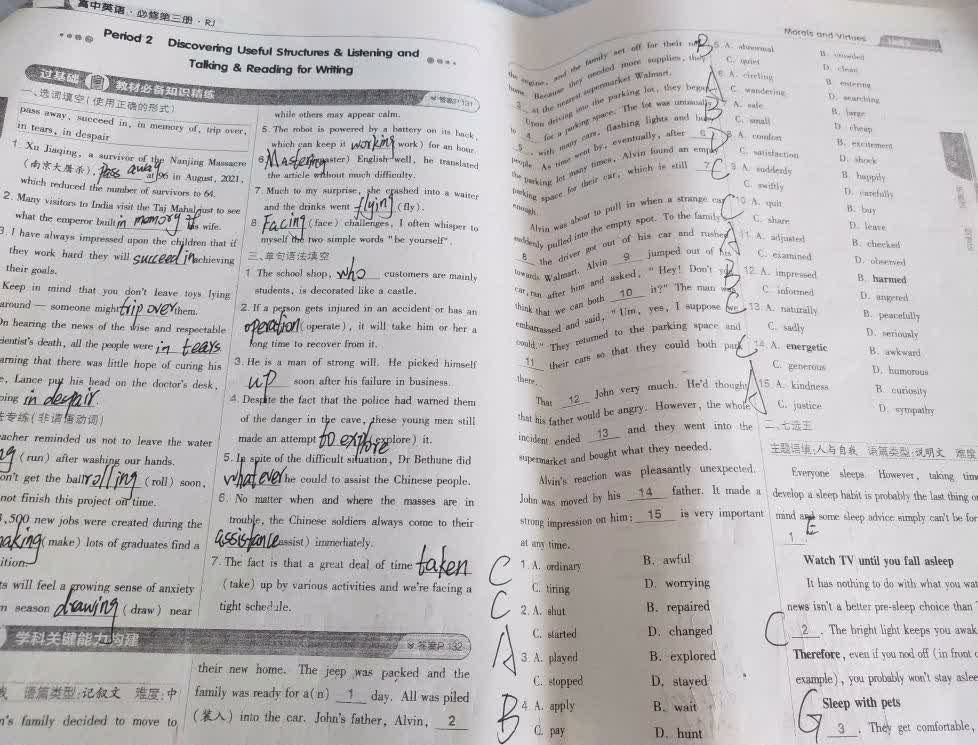 高中英语·必修第三册·RJ
Period 2 Discovering Useful Structures & Listening and
Talking & Reading for Writing
过基础 教材必备知识精练
答案P131
一、选词填空(使用正确的形式)
pass away, succeed in, in memory of, trip over,
in tears, in despair
1. Xu Jiaqing, a survivor of the Nanjing Massacre
(南京大屠杀), Pass away at 96 in August, 2021,
which reduced the number of survivors to 64.
2. Many visitors to India visit the Taj Mahal just to see
what the emperor built in memory of his wife.
3. I have always impressed upon the children that if
they work hard they will succeed in achieving
their goals.
Keep in mind that you don't leave toys lying
around — someone might trip over them.
On hearing the news of the wise and respectable
dentist's death, all the people were in tears
arning that there was little hope of curing his
e, Lance put his head on the doctor's desk,
ping in despair
专练(非谓语动词)
acher reminded us not to leave the water
ng (run) after washing our hands.
on't get the ball rolling (roll) soon,
not finish this project on time.
,500 new jobs were created during the
aking (make) lots of graduates find a
ition.
ts will feel a growing sense of anxiety
m season drawing (draw) near
while others may appear calm.
5. The robot is powered by a battery on its back,
which can keep it working (work) for an hour.
6. Mastering (master) English well, he translated
the article without much difficulty.
7. Much to my surprise, she crashed into a waiter
and the drinks went flying (fly).
8. Facing (face) challenges, I often whisper to
myself the two simple words "be yourself".
三、单句语法填空
1. The school shop, who customers are mainly
students, is decorated like a castle.
2. If a person gets injured in an accident or has an
operation (operate), it will take him or her a
long time to recover from it.
3. He is a man of strong will. He picked himself
up soon after his failure in business.
4. Despite the fact that the police had warned them
of the danger in the cave, these young men still
made an attempt to explore (explore) it.
5. In spite of the difficult situation, Dr Bethune did
whatever he could to assist the Chinese people.
6. No matter when and where the masses are in
trouble, the Chinese soldiers always come to their
assistance (assist) immediately.
7. The fact is that a great deal of time taken
(take) up by various activities and we're facing a
tight schedule.
学科关键能力构建
答案P132
我 语篇类型:记叙文 难度:中
n's family decided to move to
their new home. The jeep was packed and the
family was ready for a(n) 1 day. All was piled
(装入) into the car. John's father, Alvin, 2
Morals and Virtues
the engine, and the family set off for their
home. Because they needed more supplies, they
3 at the nearest supermarket Walmart.
Upon driving into the parking lot, they began
to 4 for a parking space. The lot was unusually
5 with many cars, flashing lights and
people. As time went by, eventually, after 6
the parking lot many times, Alvin found an empty
parking space for their car, which is still 7
enough.
Alvin was about to pull in when a strange car
suddenly pulled into the empty spot. To the family
8 the driver got out of his car and rushed
towards Walmart. Alvin 9 jumped out of his
car, ran after him and asked, "Hey! Don't you
think that we can both 10 it?" The man was
embarrassed and said, "Um, yes, I suppose we
could." They returned to the parking space and
11 their cars so that they could both park
there.
That 12 John very much. He'd thought
that his father would be angry. However, the whole
incident ended 13 and they went into the
supermarket and bought what they needed.
Alvin's reaction was pleasantly unexpected.
John was moved by his 14 father. It made a
strong impression on him; 15 is very important
at any time.
C 1. A. ordinary B. awful
C. tiring D. worrying
C 2. A. shut B. repaired
C. started D. changed
A 3. A. played B. explored
C. stopped D. stayed
B 4. A. apply B. wait
C. pay D. hunt
B 5. A. abnormal B. crowded
C. quiet D. clean
A 6. A. circling B. entering
C. wandering D. searching
B A. safe B. large
C. small D. cheap
D 8. A. comfort B. excitement
C. satisfaction D. shock
C 9. A. suddenly B. happily
C. swiftly D. carefully
C 10. A. quit B. buy
C. share D. leave
A 11. A. adjusted B. checked
C. examined D. observed
B 12. A. impressed B. harmed
C. informed D. angered
C 13. A. naturally B. peacefully
C. sadly D. seriously
C 14. A. energetic B. awkward
C. generous D. humorous
A 15. A. kindness B. curiosity
C. justice D. sympathy
二、七选五
主题语境:人与自我 语篇类型:说明文 难度
Everyone sleeps. However, taking time
develop a sleep habit is probably the last thing o
mind and some sleep advice simply can't be for
1 E
Watch TV until you fall asleep
It has nothing to do with what you wat
news isn't a better pre-sleep choice than
C 2. The bright light keeps you awak
Therefore, even if you nod off (in front o
example), you probably won't stay aslee
Sleep with pets
G 3. They get comfortable,